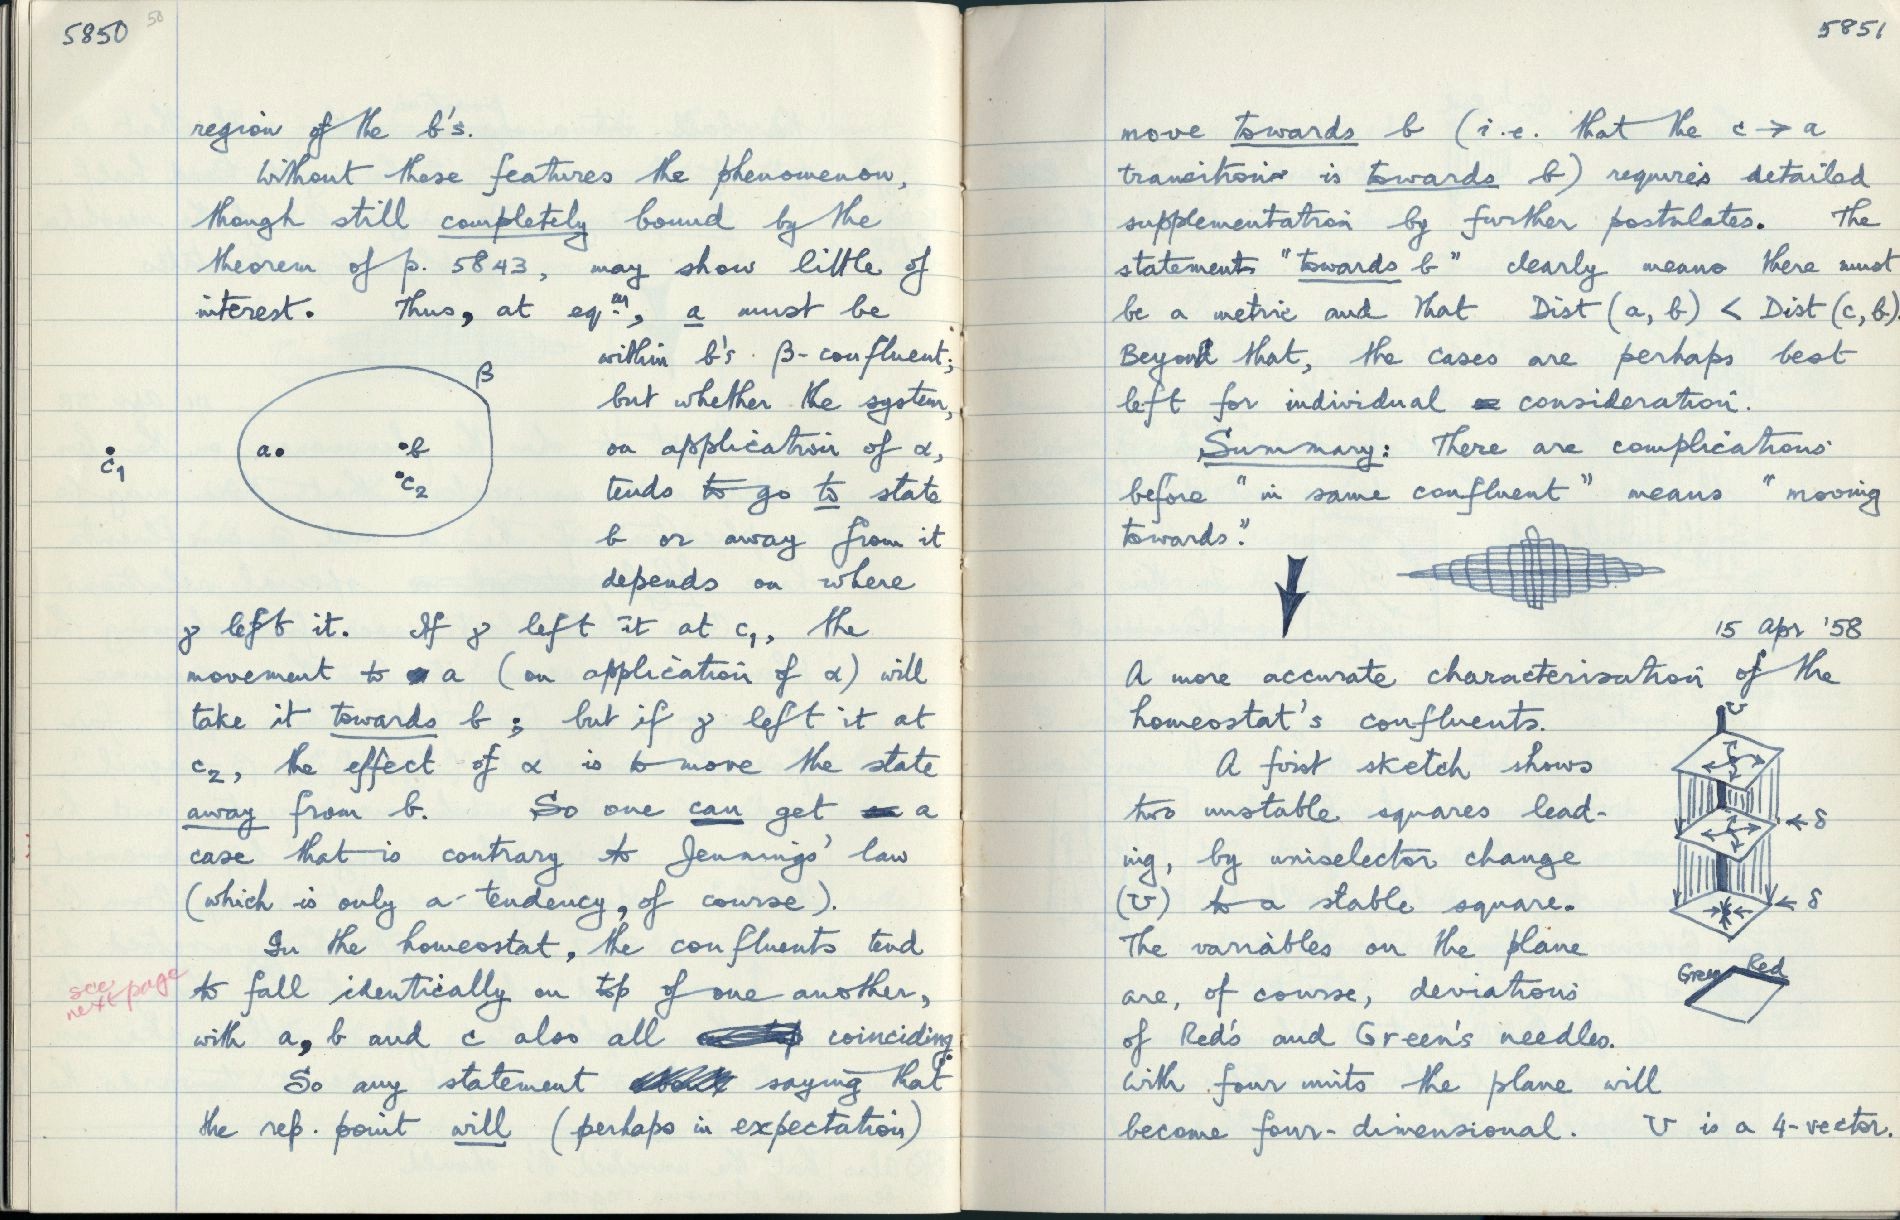 5850
50
region of the b's.
Without these features the phenomenon,
though still completely bound by the
theorem of p. 5843, may show little of
interest. Thus, at eqm, a must be
within b's β-confluent;
but whether the system,
on application of α,
tends to go to state
b or away from it
depends on where
β
a
b
c2
c1
γ left it. If γ left it at c1, the
movement to a (on application of α) will
take it towards b; but if γ left it at
c2, the effect of α is to move the state
away from b. So one can get a
case that is contrary to Jennings' law
(which is only a tendency, of course).
In the homeostat, the confluents tend
to fall identically on top of one another,
with a, b and c also all coinciding.
see
next page
So any statement saying that
the rep. point will (perhaps in expectation)
5851
move towards b (i.e. that the c → a
transition is towards b) requires detailed
supplementation by further postulates. The
statement "towards b" clearly means there must
be a metric and that Dist(a, b) < Dist(c, b).
Beyond that, the cases are perhaps best
left for individual consideration.
Summary: There are complications
before "in same confluent" means "moving
towards".
15 Apr '58
A more accurate characterisation of the
homeostat's confluents.
A first sketch shows
two unstable squares lead-
ing, by uniselector change
(U) to a stable square.
The variables on the plane
are, of course, deviations
of Red's and Green's needles.
With four units the plane will
become four-dimensional. U is a 4-vector.
U
δ
δ
Green Red